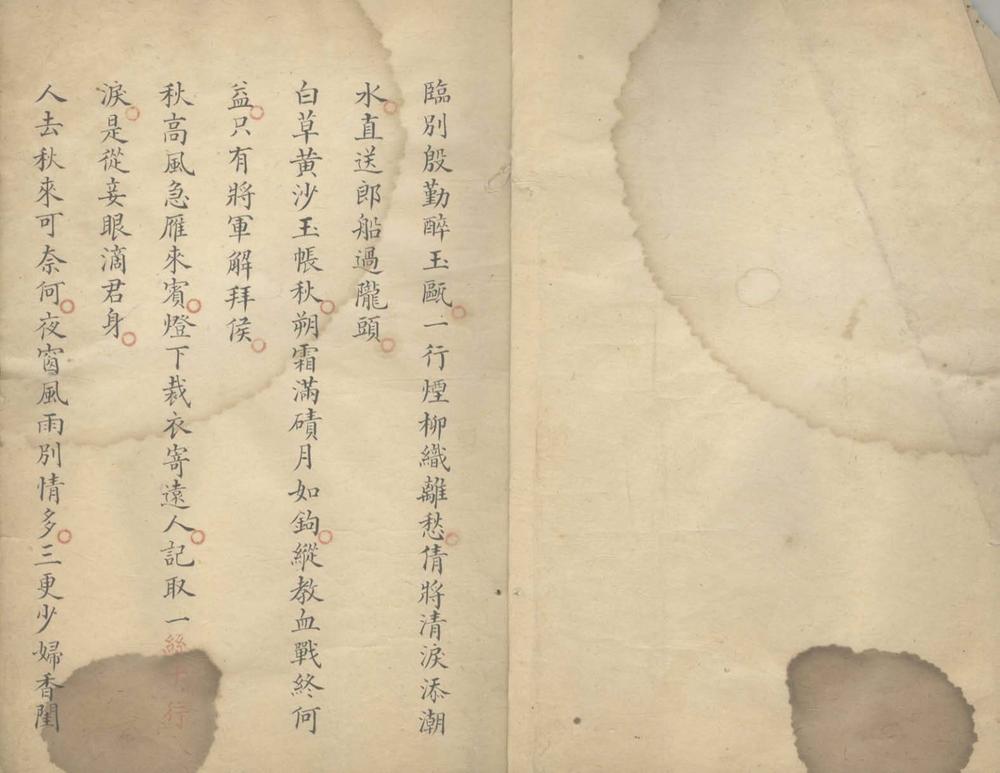 臨別殷勤醉玉甌一行煙柳織離愁倩將清淚添潮
水直送郎船過隴頭
白草黃沙玉帳秋朔霜滿磧月如鉤縱教血戰終何
益只有將軍解拜侯
秋高風急雁來賓燈下裁衣寄遠人記取一絲千行
淚是從妾眼滴君身
人去秋來可奈何夜窗風雨別情多三更少婦香閨